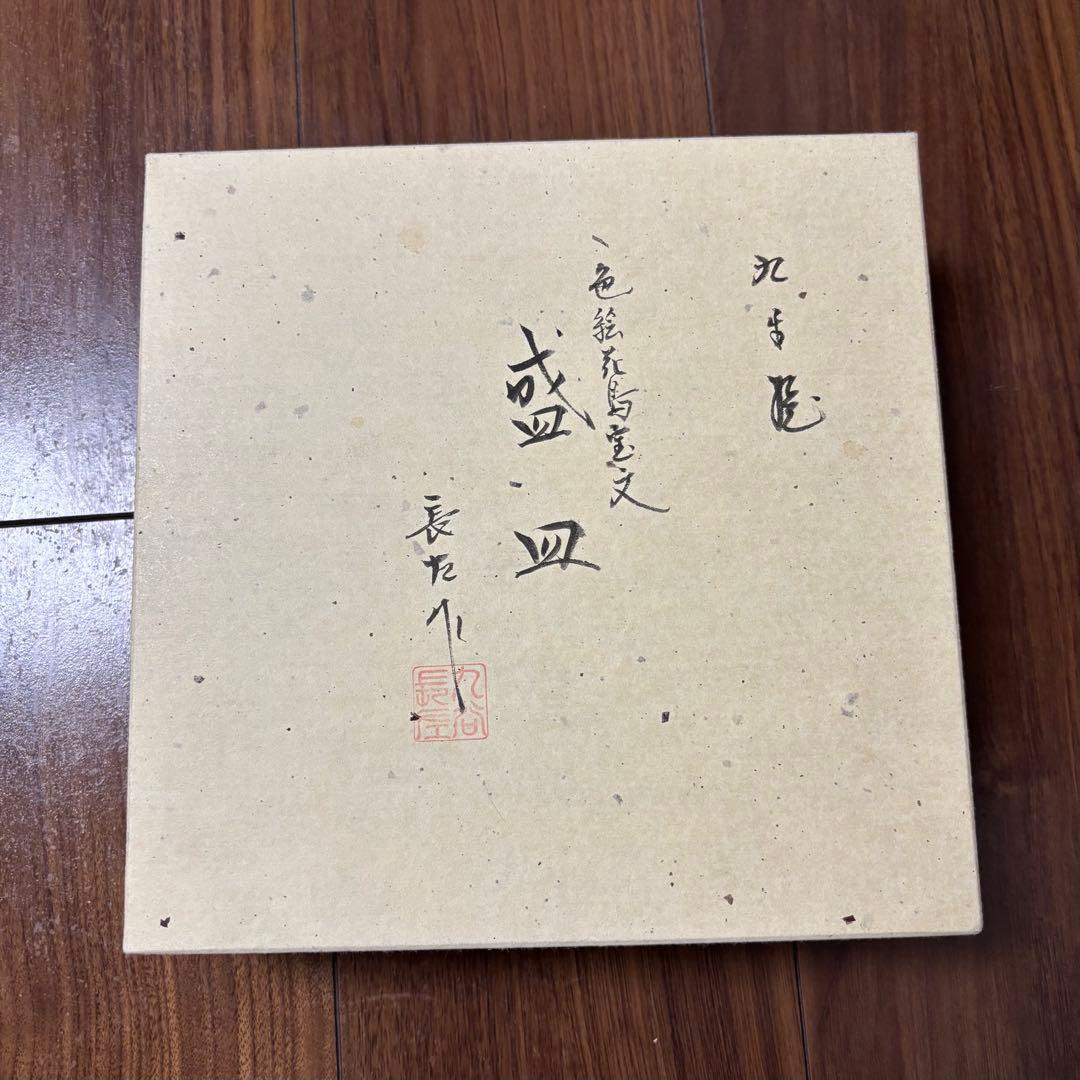 九
色絵花鳥宝文
盛皿
長左作
九谷
長左